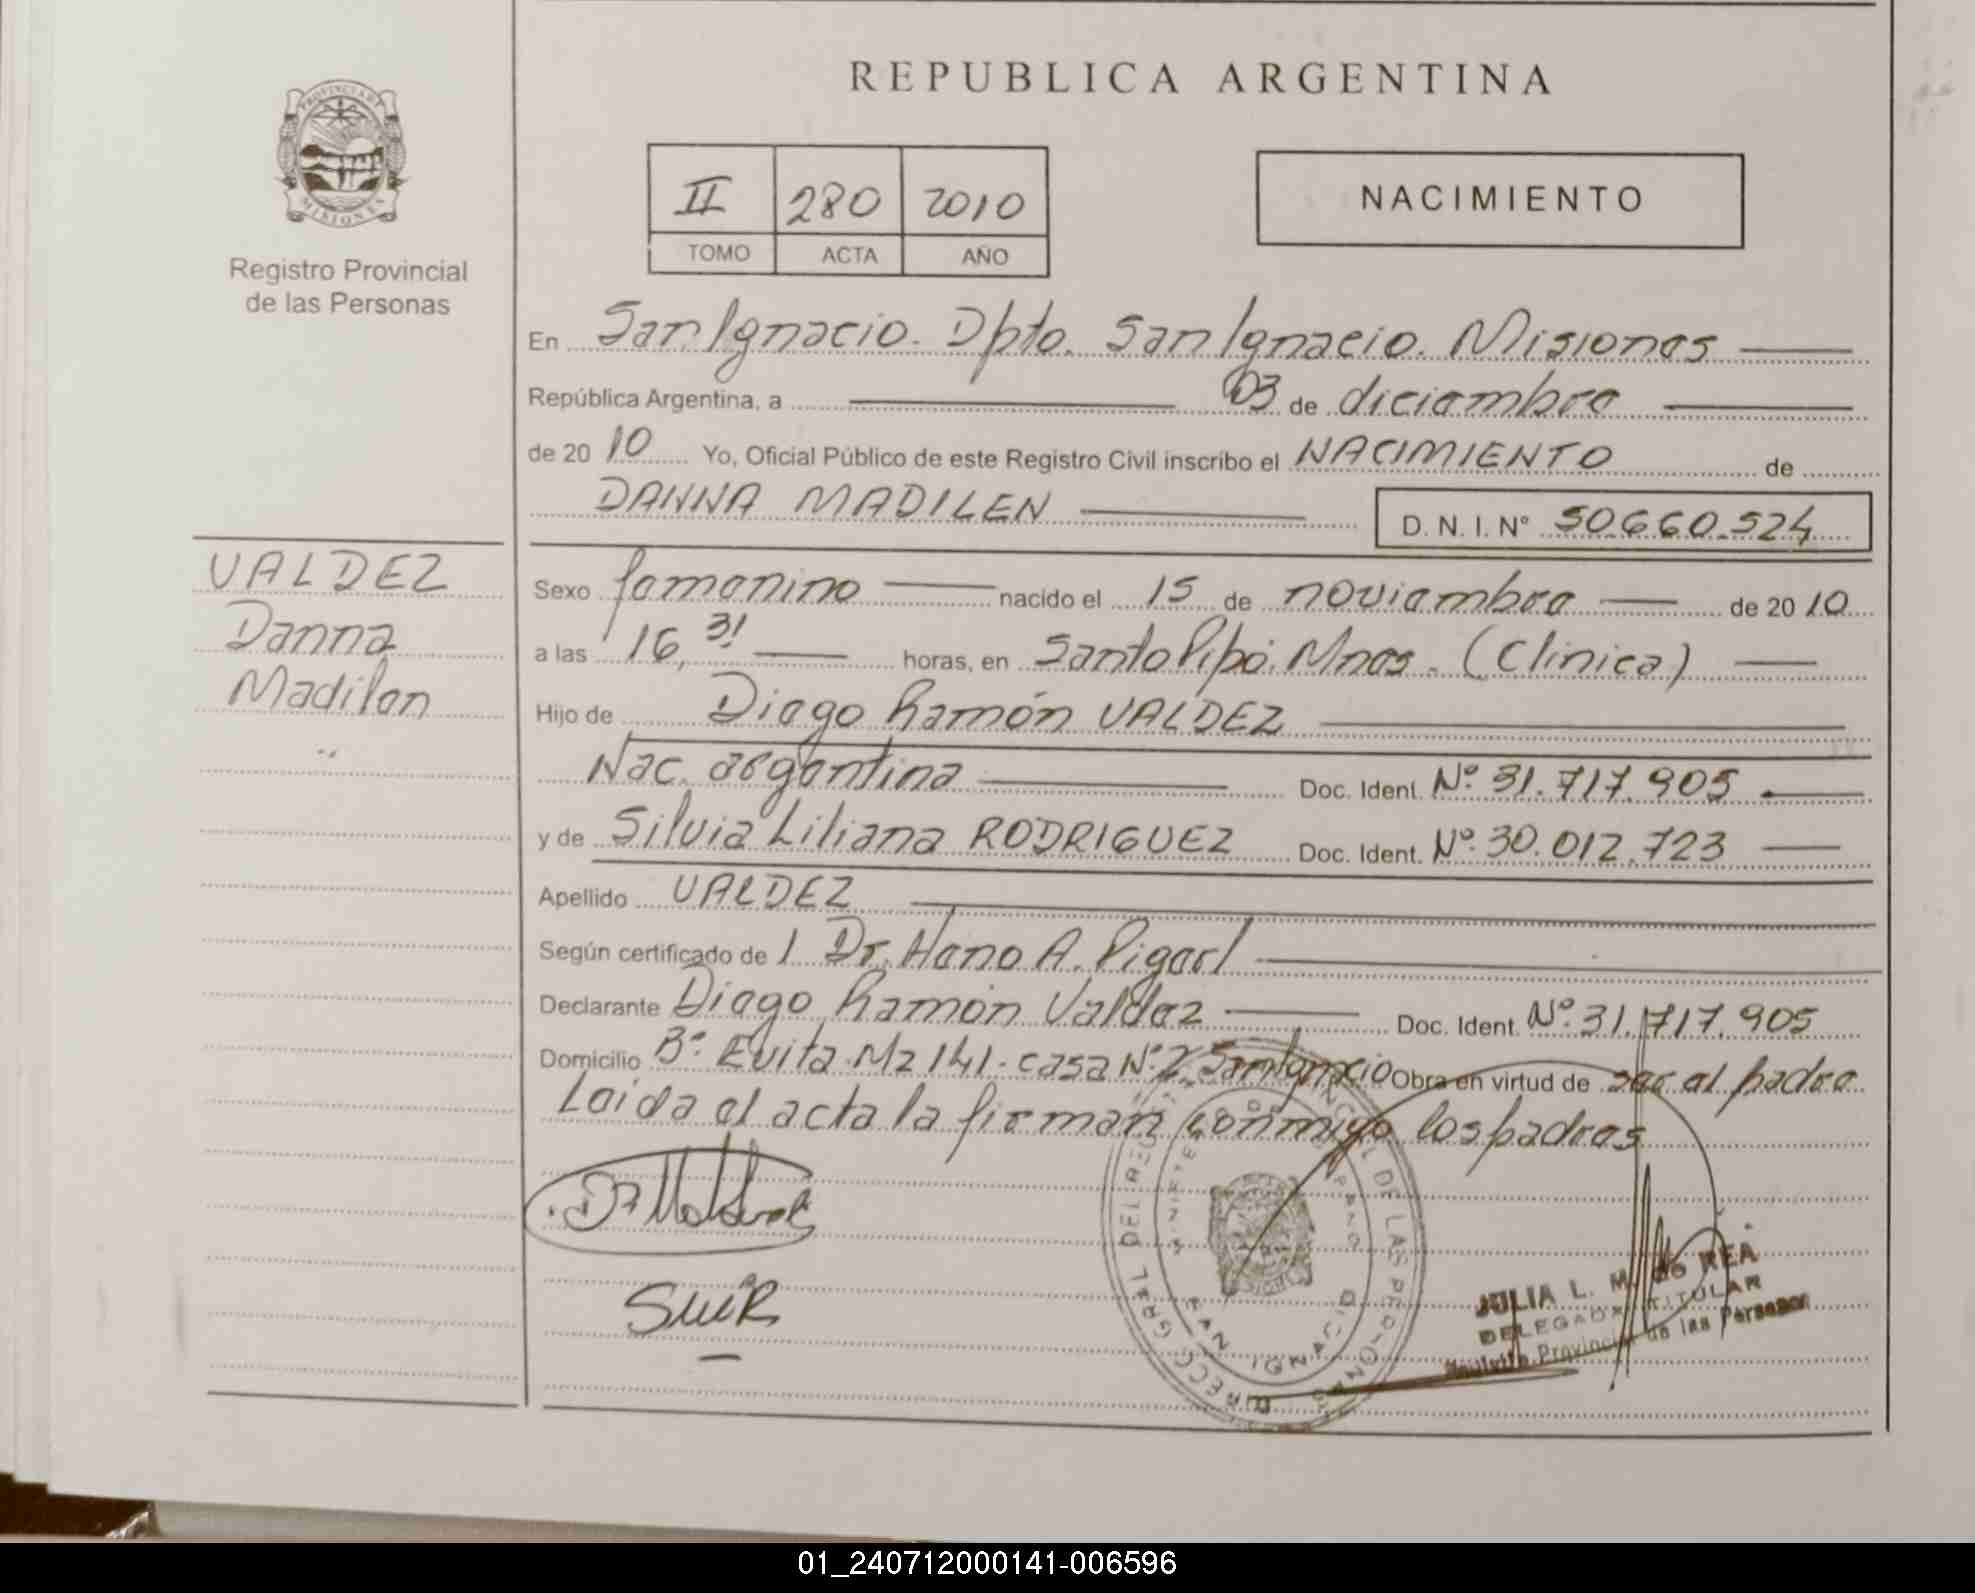 REPUBLICA ARGENTINA
PROVINCIA DE MISIONES
Registro Provincial
de las Personas
II 280 2010
TOMO ACTA AÑO
NACIMIENTO
En San Ignacio. Dpto. San Ignacio. Misiones
República Argentina, a 03 de diciembre
de 20 10 Yo, Oficial Público de este Registro Civil inscribo el NACIMIENTO de
DANNA MADILEN D. N. I. Nº 50.660.524
VALDEZ
Danna
Madilen
Sexo femenino nacido el 15 de noviembre de 20 10
a las 16,31 horas, en Santo Pipó. Mnes. (Clinica)
Hijo de Diego Ramón VALDEZ
Nac. argentina Doc. Ident. Nº. 31.717.905
y de Silvia Liliana RODRIGUEZ Doc. Ident. Nº. 30.012.723
Apellido VALDEZ
Según certificado de 1 Dr. A.
Declarante Diego Ramón Valdez Doc. Ident. Nº. 31.717.905
Domicilio Bº. Evita. Mz 141. casa Nº. 2. San Ignacio Obra en virtud de ser al padre
Leida el acta la firman conmigo los padres
DIRECC. GRAL. DEL REG. PROVINCIAL DE LAS PERSONAS
SAN IGNACIO
JULIA L. M. de REA
DELEGADA TITULAR
Registro Provincial de las Personas
01_240712000141-006596